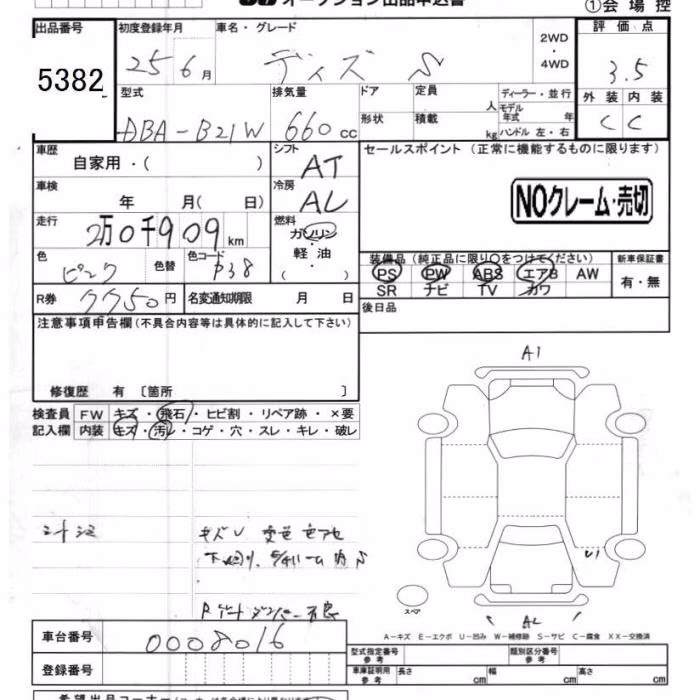 オークション出品申込書
①会場控
出品番号 初度登録年月 車名・グレード 2WD ・ 4WD 評価点
5382 25 6月 デイズ S 3.5
型式 排気量 ドア 定員 人 ディーラー・並行 外装 内装
モデル年式 年
DBA-B21W 660cc 形状 積載 kg ハンドル 左・右 C C
車歴 自家用・( ) シフト AT セールスポイント (正常に機能するものに限ります)
車検 年 月( 日) 冷房 AC
NOクレーム・売切
走行 2万0千909km 燃料 ガソリン・軽油・( )
装備品 (純正品に限り○をつけてください) 新車保証書
色 ピンク 色替 色コード P38
PS PW ABS エアB AW 有・無
SR ナビ TV カワ
R券 7750円 名変通知期限 月 日
後日品
注意事項申告欄 (不具合内容等は具体的に記入して下さい)
A1
修復歴 有 〔箇所 〕
検査員 FW キズ・飛石・ヒビ割・リペア跡・×要
記入欄 内装 キズ・汚レ・コゲ・穴・スレ・キレ・破レ
シートシミ
U1
スペア
Rゲートダンパー不良
A2
A-キズ E-エクボ U-凹み W-補修跡 S-サビ C-腐食 XX-交換済
車台番号 0008016
型式指定番号 参考 類別区分番号 参考
登録番号 車庫証明用 参考 長さ cm 幅 cm 高さ cm
希望出品コーナー